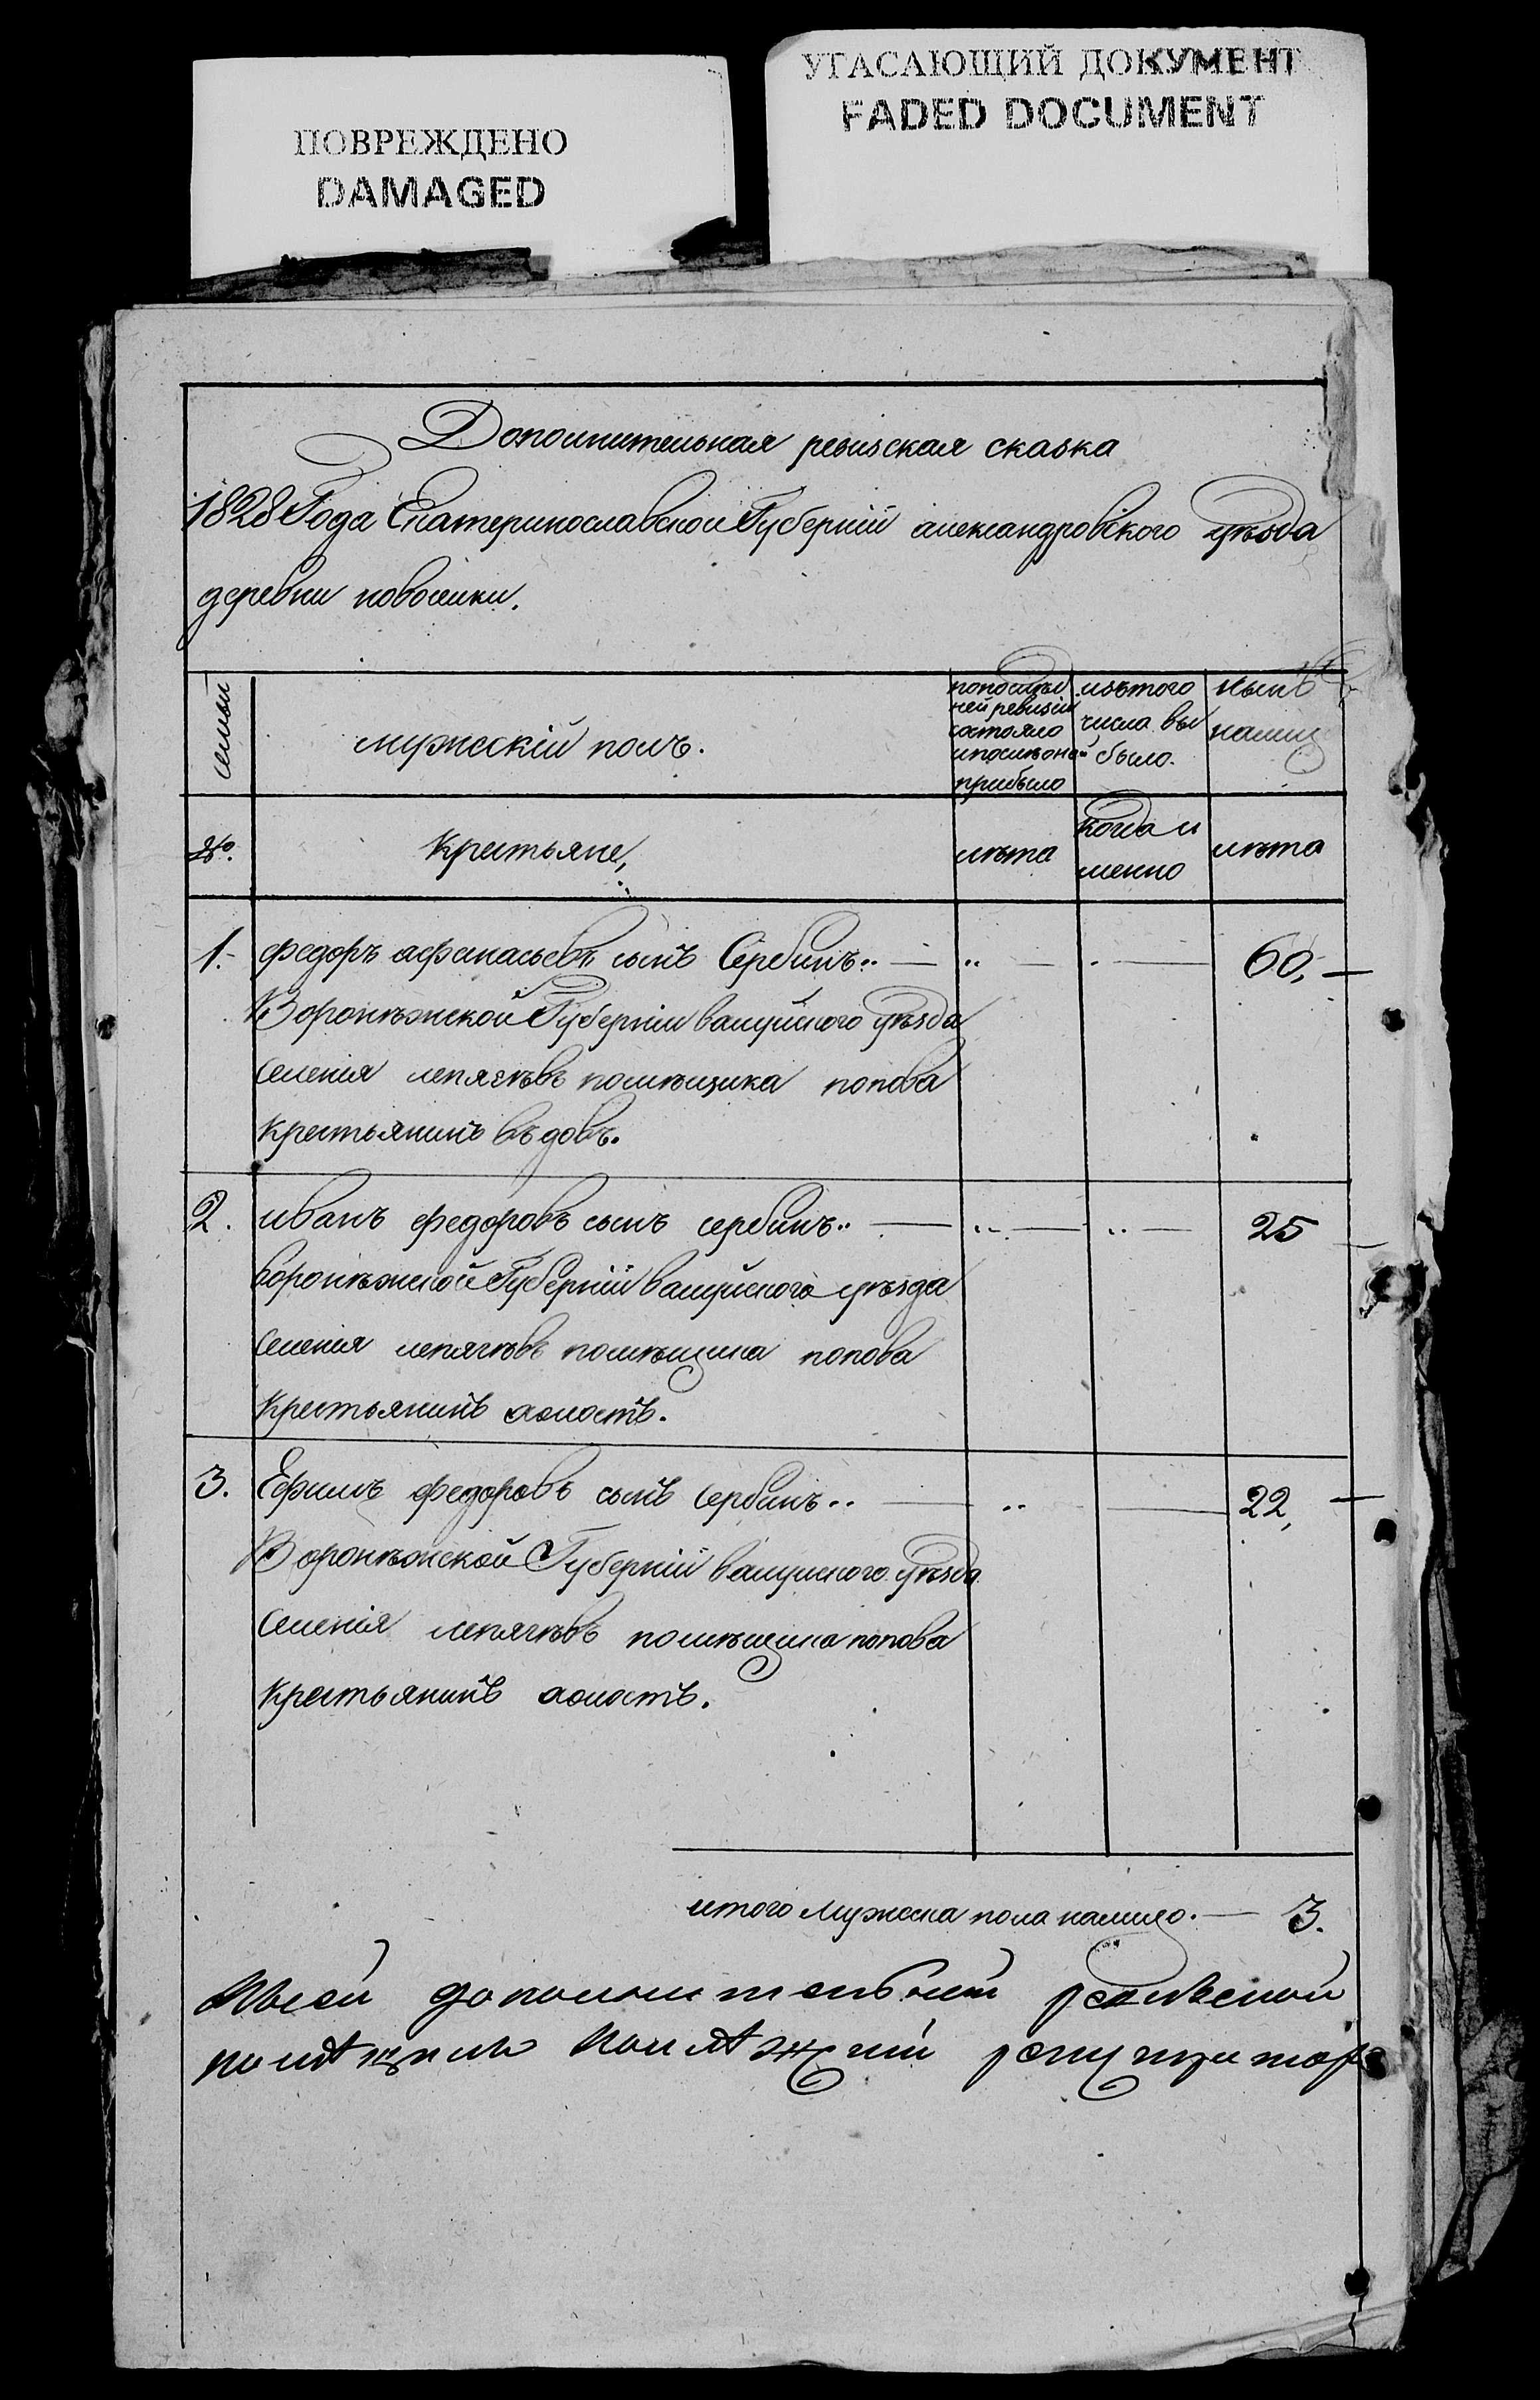 УГАСАЮЩИЙ ДОКУМЕНТ
FADED DOCUMENT
ПОВРЕЖДЕНО
DAMAGED
Дополнительная ревизская сказка
1828 Года Екатеринославской Губерніи александровского уѣзда
деревни новоселки.
семьи
мужескій полъ.
попослѣд
ней ревизіи
состояло
ипослѣоной
прибыло
изътого
числа вы
было.
нынѣ
налиц
№.
Крестьяне,
лѣта
когда и
менно
лѣта
1. федоръ афанасьевъ сынъ Сербинъ.. — .. — . — 60, —
Воронѣжской Губерніи валуйского уѣзда
селенія лепягѣвъ помѣщика попова
крестьянинъ въдовъ.
2. иванъ федоровъ сынъ сербинъ.. — .. — .. — 25 —
воронѣжской Губерніи валуйского уѣзда
селенія лепягѣвъ помѣщика попова
крестьянинъ холостъ.
3. Ефимъ федоровъ сынъ сербинъ.. — .. — 22, —
Воронѣжской Губерніи валуйского уѣзда
селенія лепягѣвъ помѣщика попова
крестьянинъ холостъ.
итого мужеска пола налицо. — 3.
дополнительной